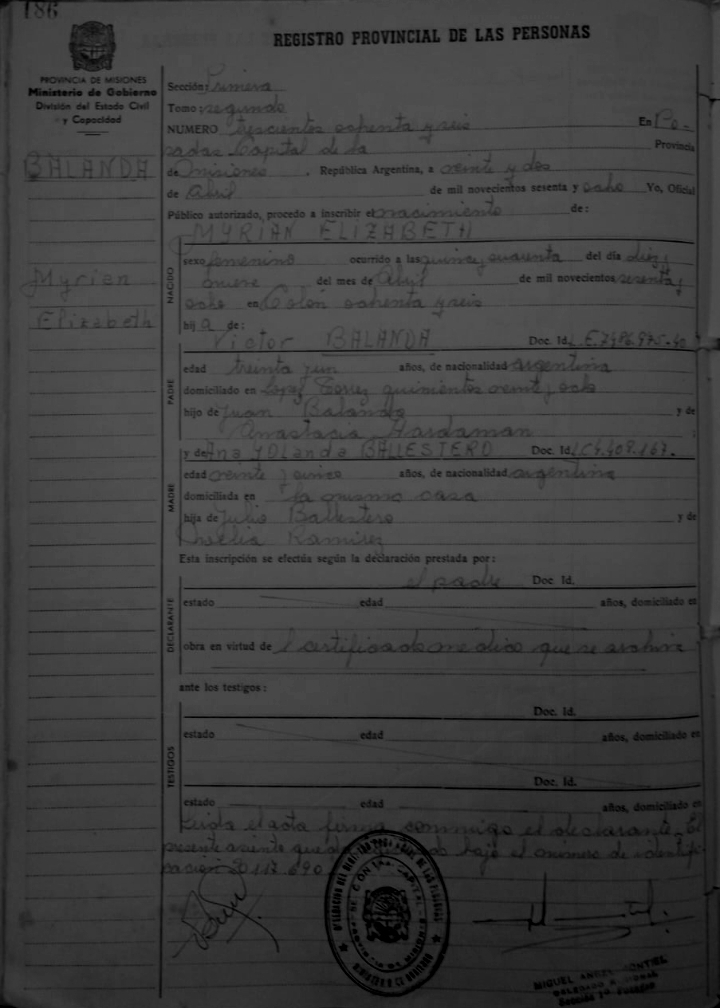 186
REGISTRO PROVINCIAL DE LAS PERSONAS
PROVINCIA DE MISIONES
Ministerio de Gobierno
División del Estado Civil
y Capacidad
BALANDA
Myrian
Elizabeth
Sección: Primera
Tomo: segundo
NUMERO Trescientos ochenta y seis En Po-
sadas Capital de la Provincia
de Misiones, República Argentina, a veinte y dos
de Abril de mil novecientos sesenta y ocho Yo, Oficial
Público autorizado, procedo a inscribir el nacimiento de:
MYRIAN ELIZABETH
NACIDO
sexo femenino ocurrido a las quince y cuarenta del día diez y
nueve del mes de Abril de mil novecientos sesenta y
ocho en Colón ochenta y seis
hij a de:
Victor BALANDA Doc. Id. L.E. 7.486.975
PADRE
edad treinta y un años, de nacionalidad argentina
domiciliado en López Torres quinientos veinte y ocho
hijo de Juan Balanda y de
Anastacia
y de Ana YOLanda BALLESTERO Doc. Id. L.C 4.409.167.
MADRE
edad veinte y cinco años, de nacionalidad argentina
domiciliada en la misma casa
hija de Julio Ballestero y de
Ramirez
Esta inscripción se efectúa según la declaración prestada por:
DECLARANTE
el padre Doc. Id.
estado edad años, domiciliado en
obra en virtud del certificado medico que se archiva
ante los testigos:
TESTIGOS
Doc. Id.
estado edad años, domiciliado en
Doc. Id.
estado edad años, domiciliado en
Leida el acta firma conmigo el declarante. El
presente asiento bajo el número de identifi-
cación 20.117.690
MIGUEL ANGEL MONTIEL
DELEGADO